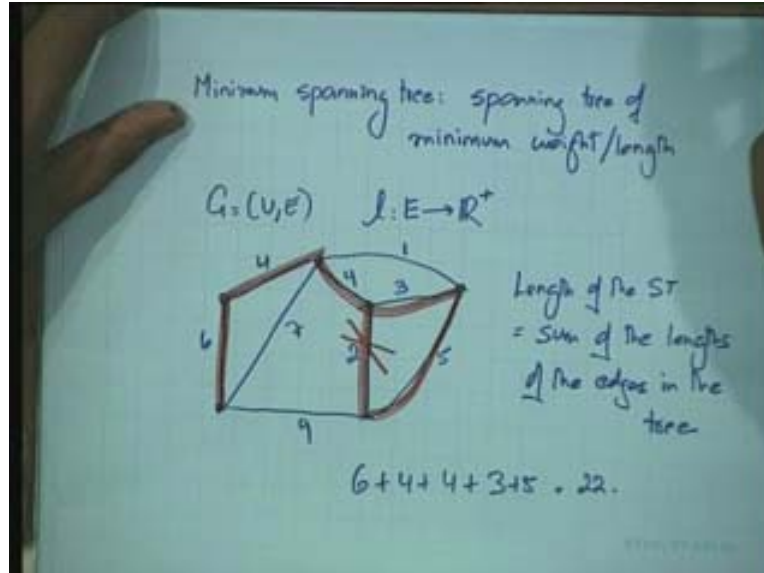 Minimum spanning tree: spanning tree of
minimum weight/length
G=(V,E) l:E→R⁺
1
4
4
3
6
7
2
5
9
Length of the ST
= sum of the lengths
of the edges in the
tree
6+4+4+3+5 = 22.